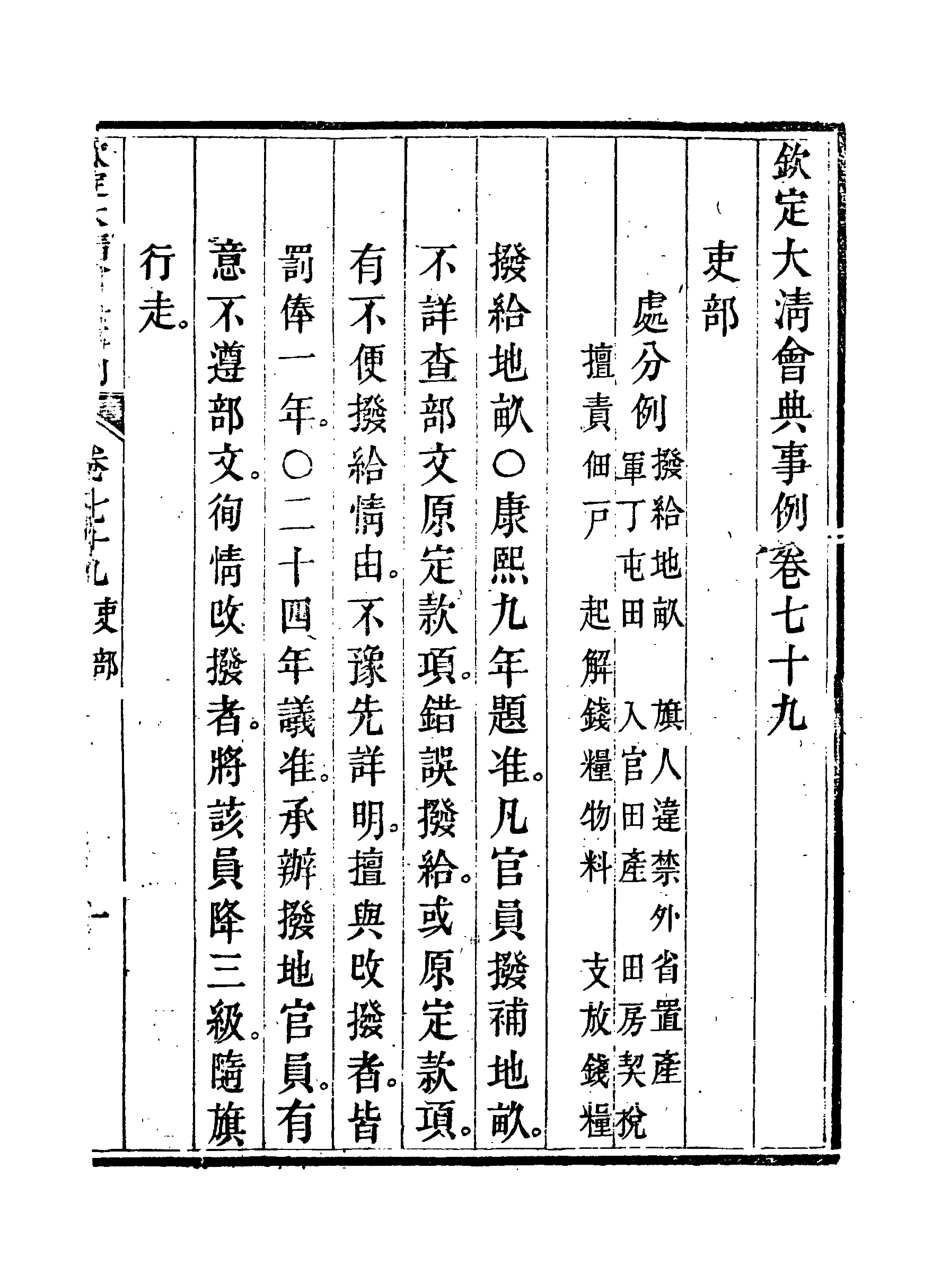 欽定大淸會典事例卷七十九
吏部
處分例
撥給地畝　旗人違禁外省置產
軍丁屯田　入官田產　田房契稅
擅責佃戶　起解錢糧物料　支放錢糧
撥給地畝○康熙九年題准。凡官員撥補地畝。
不詳查部文原定款項。錯誤撥給。或原定款項。
有不便撥給情由。不豫先詳明。擅與改撥者。皆
罰俸一年。○二十四年議准。承辦撥地官員。有
意不遵部文。徇情改撥者。將該員降三級。隨旗
行走。
定大清會典事例　卷七十九　吏部　一